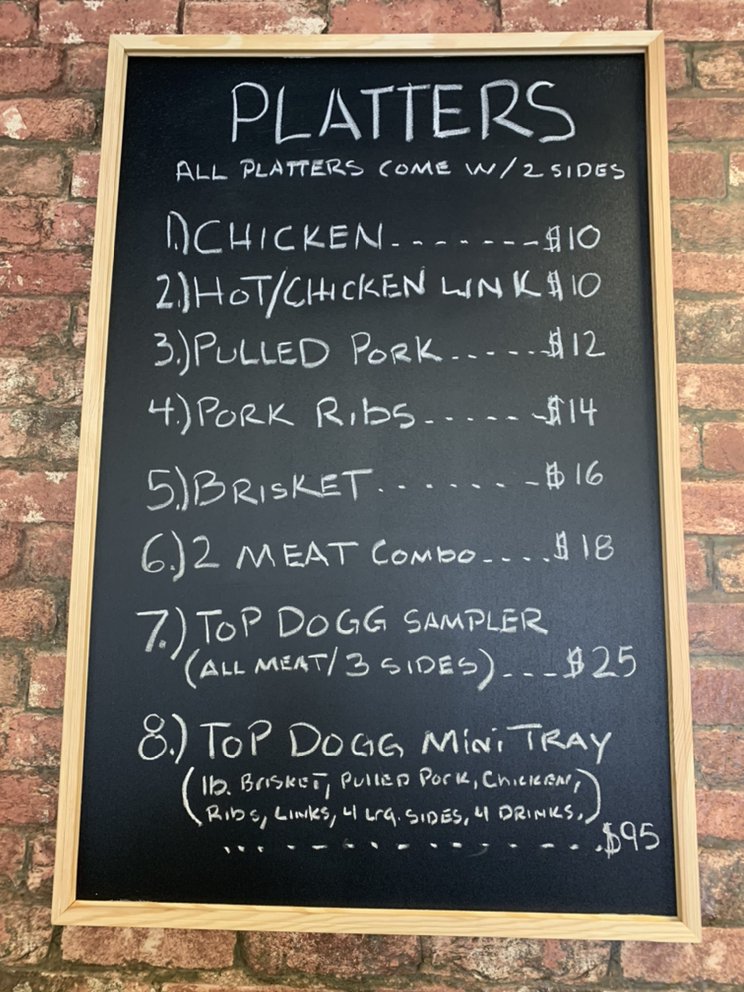 PLATTERS
ALL PLATTERS COME W/ 2 SIDES
1.) CHICKEN--------$10
2.) HOT/CHICKEN LINK $10
3.) PULLED PORK------$12
4.) PORK RIBS-------$14
5.) BRISKET--------$16
6.) 2 MEAT COMBO----$18
7.) TOP DOGG SAMPLER
(ALL MEAT/3 SIDES)---$25
8.) TOP DOGG MINI TRAY
(1b. BRISKET, PULLED PORK, CHICKEN,
RIBS, LINKS, 4 LRG. SIDES, 4 DRINKS.)
..............$95